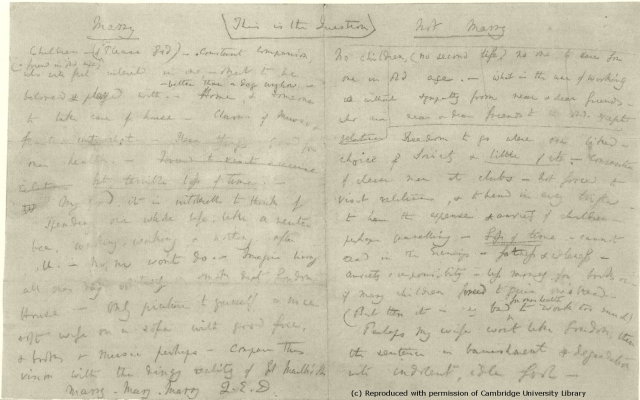 This is the Question
Marry
Children — (if Please God) — Constant companion
(& friend in old age) who will feel interested in one — object to be
beloved & played with. — better than a dog anyhow. —
Home, & someone
to take care of house — Charms of music &
good for
one's health. —
but terrible loss of time. —
My God, it is intolerable to think of
spending one's whole life, like a neuter
bee, working, working, & nothing after
all. — No, no won't do. — Imagine living
all one's day solitary in smoky dirty London
House. — Only picture to yourself a nice
soft wife on a sofa with good fire,
& books & music perhaps — Compare this
vision with the dingy reality of Grt. Marlbro' St.
Marry — Marry — Marry Q.E.D.
Not Marry
No children, (no second life), no one to care for
one in old age. — What is the use of working
without sympathy from near & dear friends —
who are near & dear friends to the old, except
relatives
Freedom to go where one liked —
choice of Society & little of it. — Conversation
of clever men at clubs — Not forced to
visit relatives, & to bend in every trifle. —
to have the expense & anxiety of children —
perhaps quarelling — Loss of time. — cannot
read in the Evenings — fatness & idleness —
Anxiety & responsibility — less money for books &c
if many children forced to gain one's bread. —
(But then it is very bad for one's health to work too much)
Perhaps my wife wont like London; then
the sentence is banishment & degradation
into indolent, idle fool —
(c) Reproduced with permission of Cambridge University Library